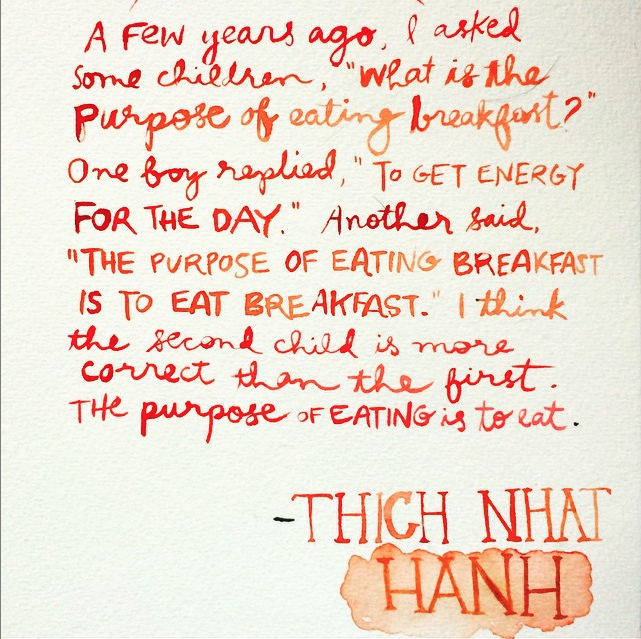 A FEW years ago, I asked
some children, "What is the
Purpose of eating breakfast?"
One boy replied, "To GET ENERGY
FOR THE DAY." Another said,
"THE PURPOSE OF EATING BREAKFAST
IS TO EAT BREAKFAST." I think
the second child is more
correct than the first.
THE purpose OF EATING is to eat.
-THICH NHAT
HANH